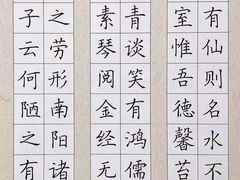 有仙则名水不
室惟吾德馨苔
青谈笑有鸿儒
素琴阅金经无
之劳形南阳诸
子云何陋之有